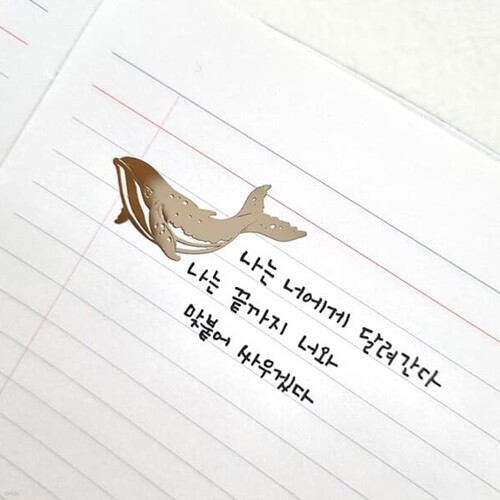 나는 너에게 달려간다
나는 끝까지 너와
맞붙어 싸우겠다